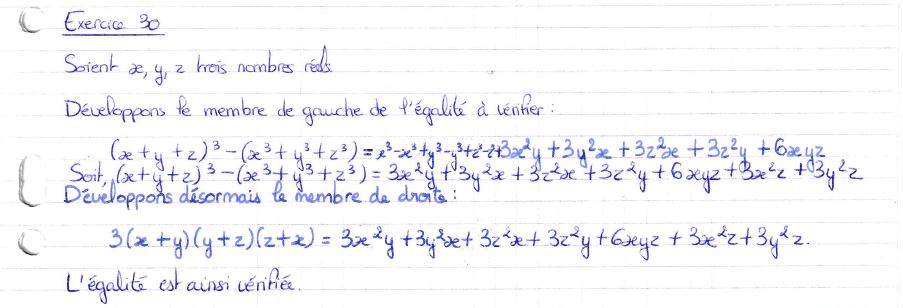 Exercice 30
Soient x, y, z trois nombres réels.
Développons le membre de gauche de l'égalité à vérifier :
(x+y+z)³-(x³+y³+z³) = x³-x³+y³-y³+z³-z³+3x²y+3y²x+3z²x+3z²y+6xyz
Soit, (x+y+z)³-(x³+y³+z³) = 3x²y+3y²x+3z²x+3z²y+6xyz+3x²z+3y²z
Développons désormais le membre de droite :
3(x+y)(y+z)(z+x) = 3x²y+3y²x+3z²x+3z²y+6xyz+3x²z+3y²z.
L'égalité est ainsi vérifiée.